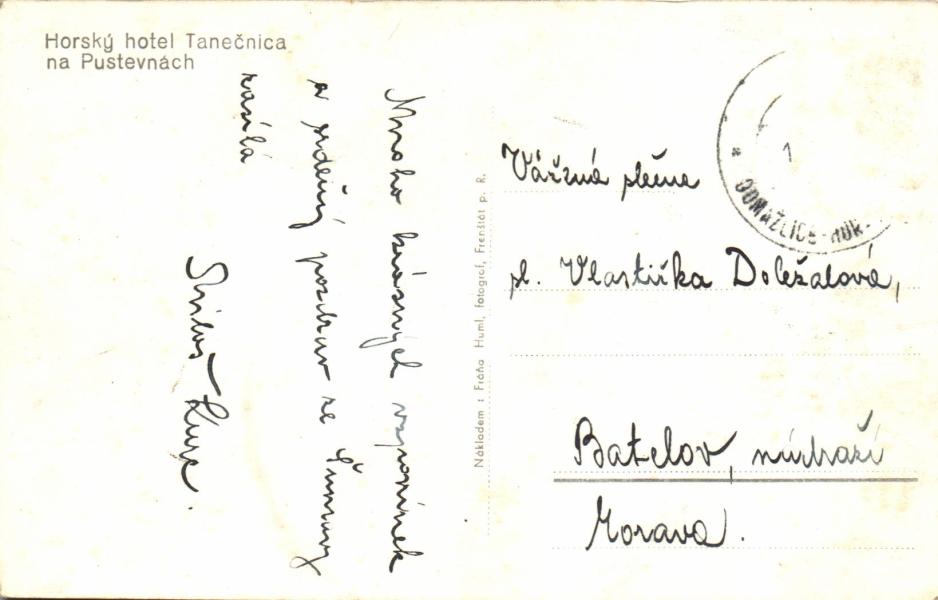 Horský hotel Tanečnica
na Pustevnách
Mnoho krásných vzpomínek
a srdečný pozdrav ze Šumavy
zasílá
Nákladem: Fráňa Huml, fotograf, Frenštát p. R.
DOMAŽLICE
Vážená slečna
sl. Vlastička Doležalová,
Batelov, nádraží
Morava.